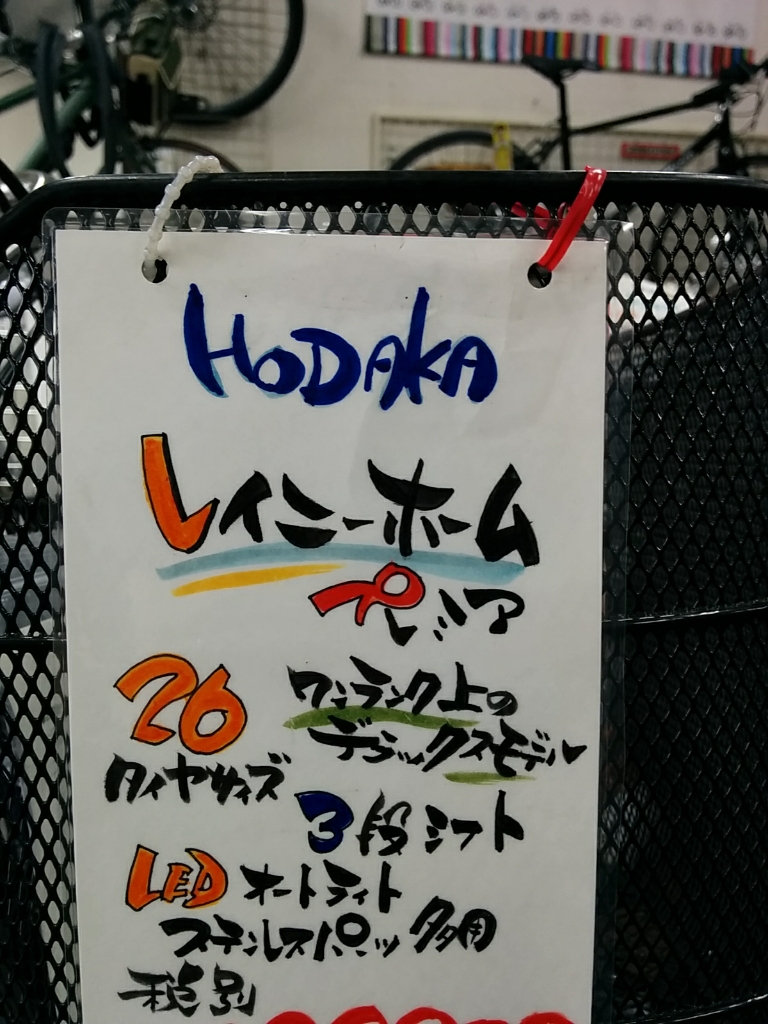 HODAKA
レイニーホーム
プレシア
26
タイヤサイズ
ワンランク上の
デラックスモデル
3段シフト
LEDオートライト
ステンレスパーツ多用
税別